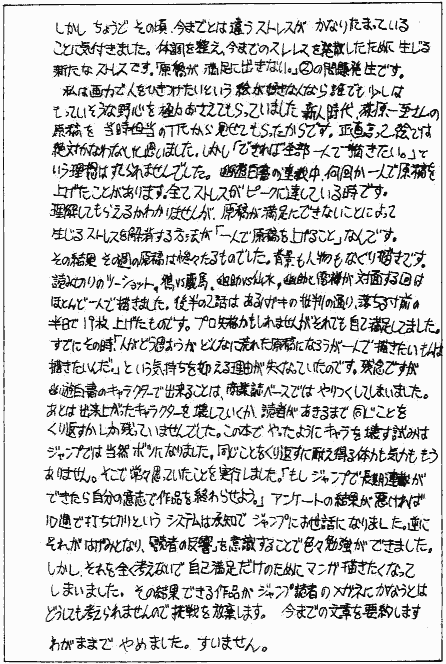 しかし ちょうど その頃、今までとは違うストレスが かなりたまっている
ことに気付きました。体調を整え、今までのストレスを発散したために生じる
新たなストレスです。「原稿が満足に出きない。」②の問題発生です。
私は画力で人をひきつけたいという 絵が好きな人なら誰でも少しは
もっていそうな野心を極力おさえてもらっていました。新人時代、萩原一至さんの
原稿を 当時担当のT氏から見せてもらったからです。正直言って絵では
絶対かなわないと思いました。しかし「できれば全部一人で描きたい。」と
いう理想はすてられませんでした。幽遊白書の連載中、何回か一人で原稿を
上げたことがあります。全てストレスがピークに達している時です。
理解してもらえるかわかりませんが、原稿が満足にできないことによって
生じるストレスを解消する方法が「一人で原稿を上げること」なんです。
その結果 その週の原稿は惨々たるものでした。背景も人物もなぐり描きです。
読みきりのツーショット。樹vs蔵馬、幽助vs仙水。幽助と雷禅が対面する回は
ほとんど一人で描きました。後半の2話は あるハガキの批判の通り、落ちる寸前の
半日で19枚上げたものです。プロ失格かもしれませんがそれでも自己満足してました。
すでにその時「人がどう思うがどんなに荒れた原稿になろうが一人で描きたいもんは
描きたいんだ。」という気持ちを抑える理由が失くなっていたのです。残念ですが
幽遊白書のキャラクターで出来ることは、商業誌ベースではやりつくしてしまいました。
あとは出来上がったキャラクターを壊していくか、読者があきるまで同じことを
くり返すかしか残っていませんでした。この本でやったようにキャラを壊す試みは
ジャンプでは当然ボツになりました。同じことをくり返すに耐え得る体力も気力ももう
ありません。そこで常々思っていたことを実行しました。「もしジャンプで長期連載が
できたら自分の意志で作品を終わらせよう。」アンケートの結果が悪ければ
10週で打ち切りというシステムは承知でジャンプにお世話になりました。逆に
それがはげみとなり、「読者の反響」を意識することで色々勉強ができました。
しかし、それを全く考えないで自己満足だけのためにマンガ描きたくなって
しまいました。その結果できる作品がジャンプ読者のメガネにかなうとは
どうしても考えられませんので挑戦を放棄します。 今までの文章を要約します
わがままで やめました。すいません。